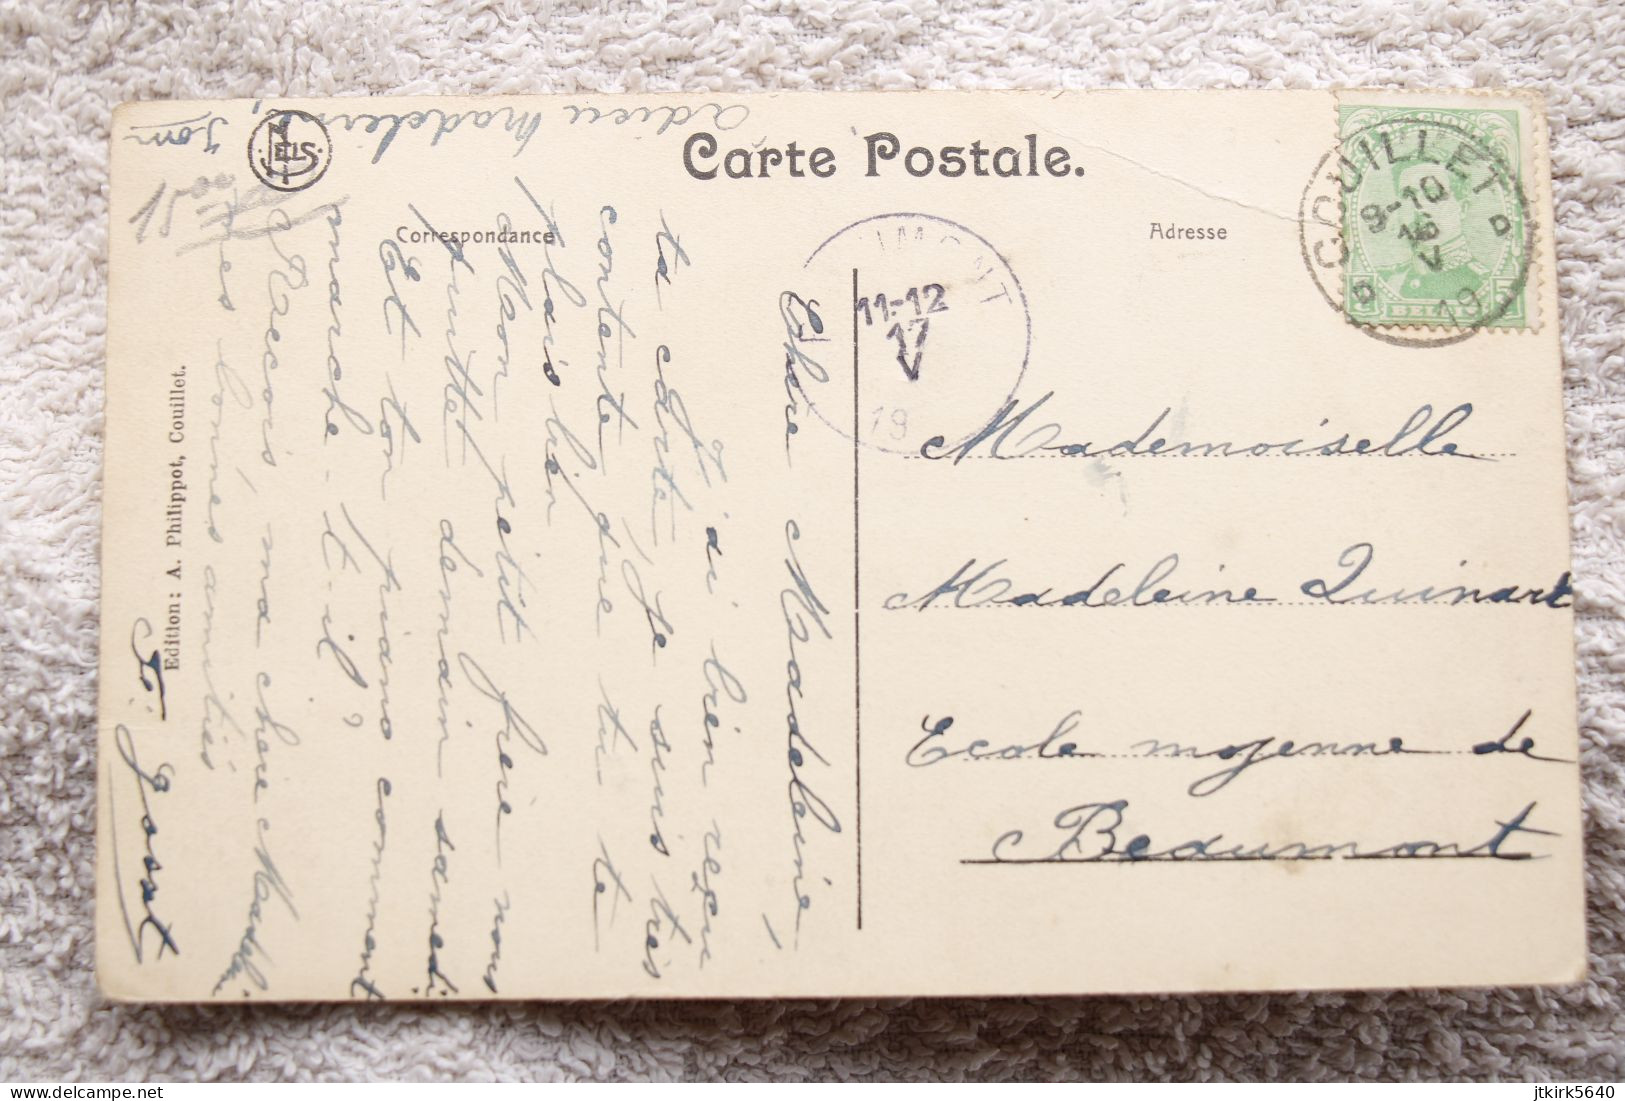 Carte Postale.
Correspondance
Adresse
NELS
COUILLET
9-10
16
V
19
BELGIQUE
5
11-12
17
V
19
Mademoiselle
Madeleine Quinart
Ecole moyenne de
Beaumont
Chère Madeleine,
J'ai bien reçu
ta carte, je suis très
contente que tu te
plais bien
Mon petit frère nous
quittet demain samedi
Et ton piano comment
marche-t-il?
Reçois, ma chère Madeleine
mes bonnes amitiés
F. Gosset
adieu Madeleine
Edition: A. Philippot, Couillet.
delcampe.net
jtkirk5640